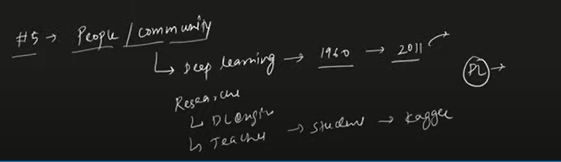 #5 → People / community
↳ Deep learning → 1960 → 2011 →
DL →
Researche
↳ DL Engin
↳ Teacher → student → Kaggle